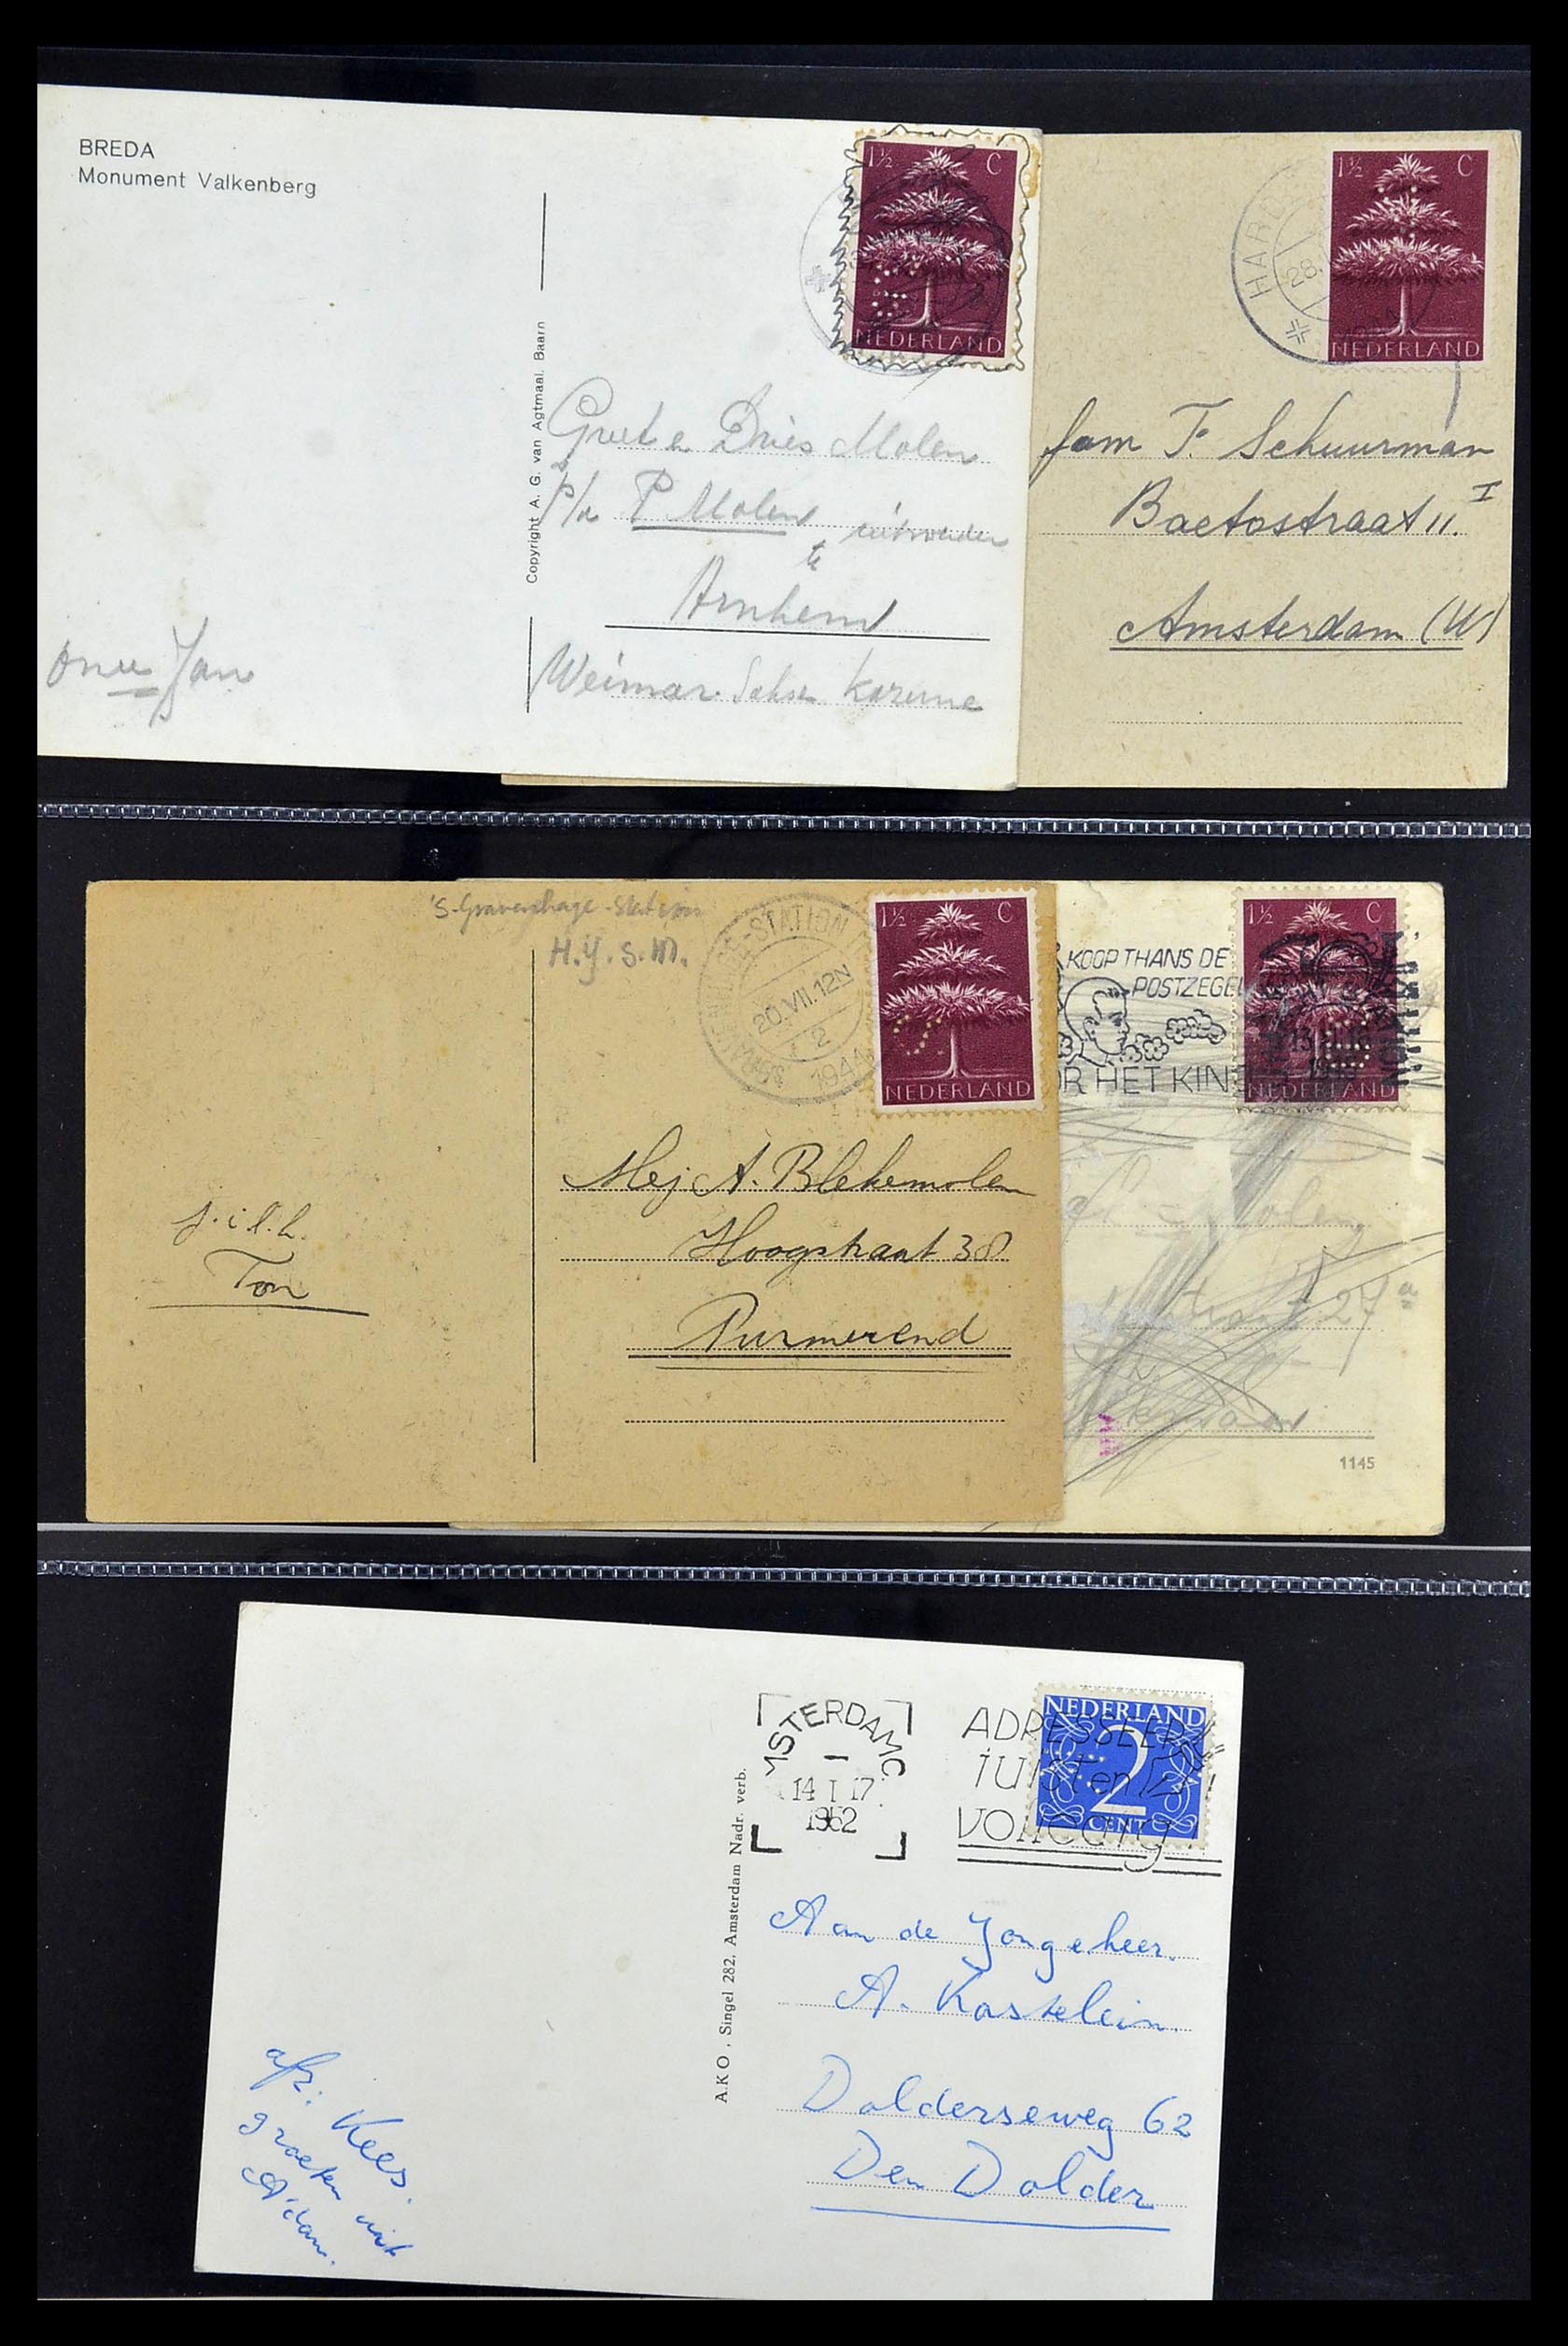 BREDA
Monument Valkenberg
1½ C
NEDERLAND
Copyright A. G. van Agtmaal, Baarn
Greet en Dries Molen
p/a P Molen
te
Arnhem
Weimar
Jan
1½ C
NEDERLAND
HARD
28.
fam F. Schuurman
Baetostraat 11. I
Amsterdam (W)
'S-Gravenhage-Station
H.Y.S.M.
GE-STATION
20.VII.12N
2
1944
1½ C
NEDERLAND
Mej A. Blekemolen
Hoogstraat 38
Purmerend
f.i.l.h.
Ton
KOOP THANS DE
POSTZEGEL
OR HET KIN
1½ C
NEDERLAND
Molen
27a
1145
MSTERDAM C
14 I 17
1952
ADRESSEER
JUIST en
VOLLEDIG
NEDERLAND
2
CENT
A.K.O, Singel 282, Amsterdam Nadr. verb.
Aan de Jongeheer
A. Kastelein
Dolderseweg 62
Den Dolder
afz: Kees.
groeten uit
A'dam.